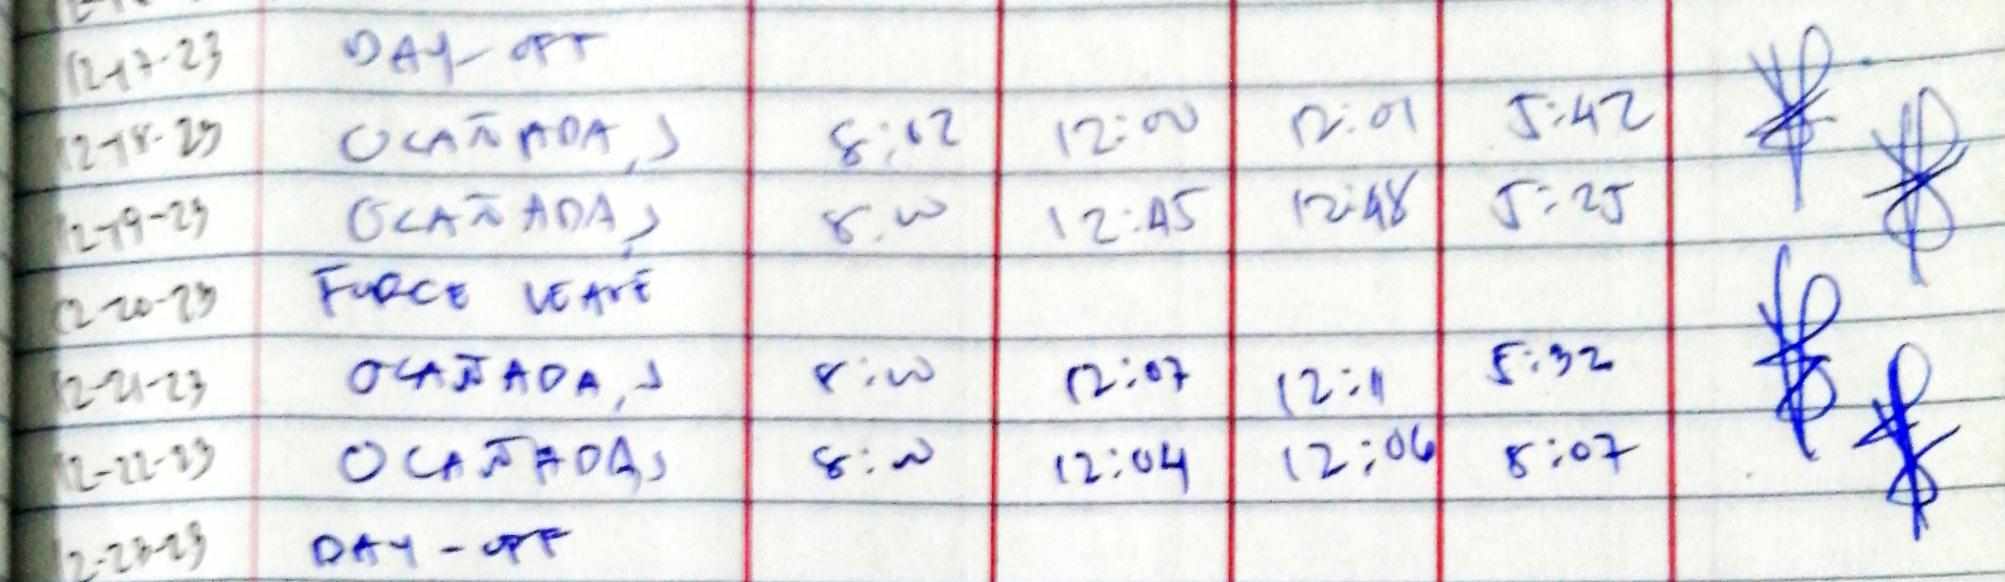 12-17-23 DAY-OFF
12-18-23 OCAÑADA, J 8:02 12:00 12:01 5:42
12-19-23 OCAÑADA, J 8:00 12:45 12:48 5:25
12-20-23 FORCE LEAVE
12-21-23 OCAÑADA, J 8:00 12:07 12:11 5:32
12-22-23 OCAÑADA, J 8:00 12:04 12:06 5:07
12-23-23 DAY-OFF